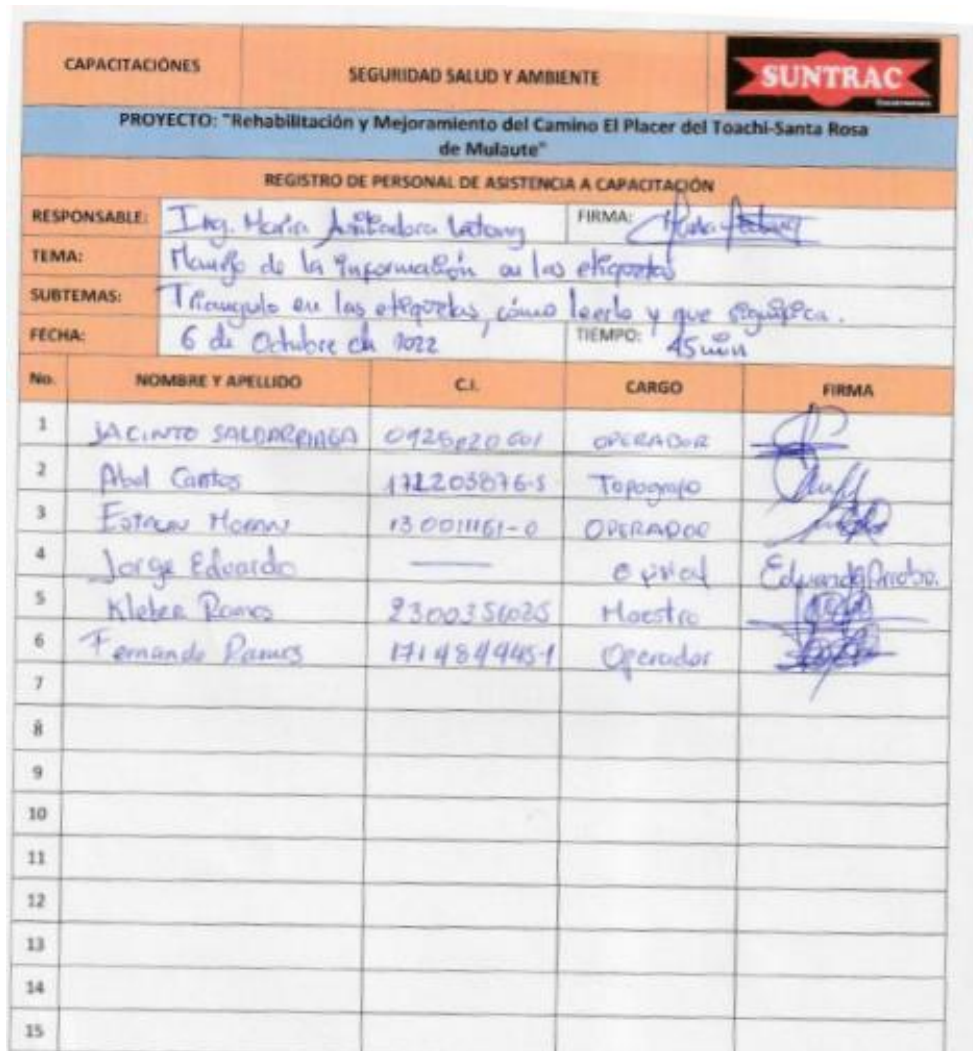 CAPACITACIÓNES
SEGURIDAD SALUD Y AMBIENTE
SUNTRAC
PROYECTO: "Rehabilitación y Mejoramiento del Camino El Placer del Toachi-Santa Rosa
de Mulaute"
REGISTRO DE PERSONAL DE ASISTENCIA A CAPACITACIÓN
RESPONSABLE: Ing. María FIRMA:
TEMA: Manejo de la información en las etiquetas
SUBTEMAS: Triangulo en las etiquetas, cómo leerlo y que significa.
FECHA: 6 de Octubre de 2022 TIEMPO: 45 min
No. NOMBRE Y APELLIDO C.I. CARGO FIRMA
1 JACINTO SALDARRIAGA OPERADOR
2 Abel Cantos 171203876-5 Topografo
3 130011161-0 OPERADOR
4 Jorge Eduardo — Eduardo
5 Kleber Ramos 2300356025 Maestro
6 Fernando Ramos 171484445-1 Operador
7
8
9
10
11
12
13
14
15